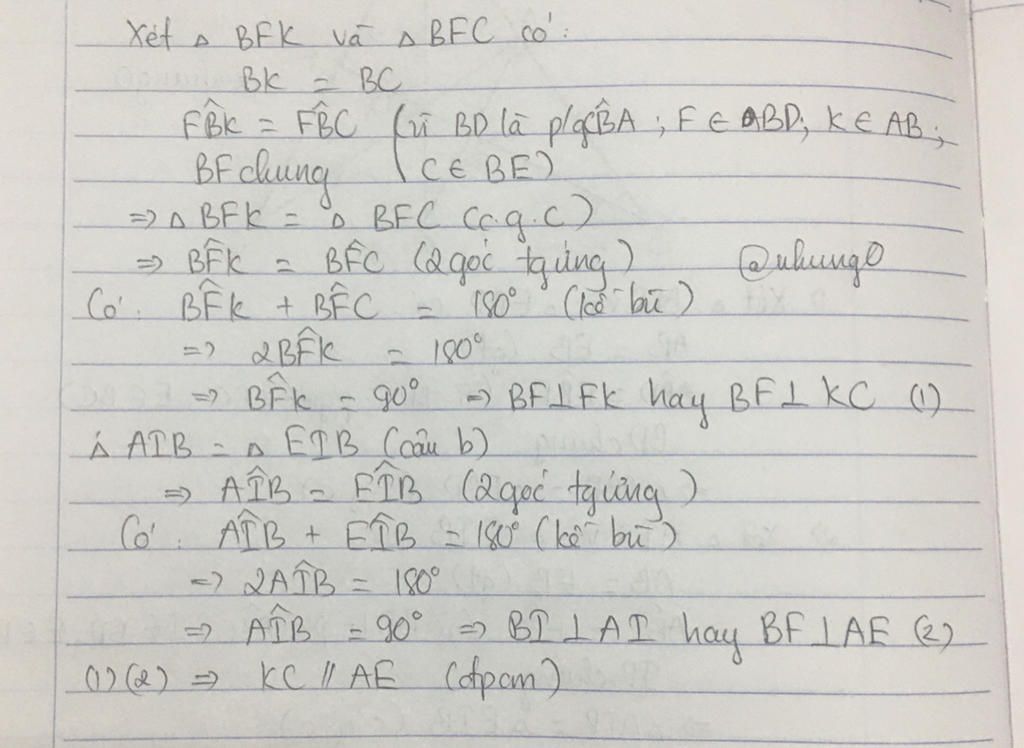 Xét △ BFK và △ BFC có:
BK = BC
FB̂K = FB̂C (vì BD là p/g CB̂A ; F ∈ BD; K ∈ AB;
BF chung C ∈ BE)
⇒ △ BFK = △ BFC (c.g.c)
⇒ BF̂K = BF̂C (2 góc tg ứng) @nhung0
Có: BF̂K + BF̂C = 180° (kề bù)
⇒ 2BF̂K = 180°
⇒ BF̂K = 90° ⇒ BF ⊥ FK hay BF ⊥ KC (1)
△ AIB = △ EIB (câu b)
⇒ AÎB = EÎB (2 góc tg ứng)
Có: AÎB + EÎB = 180° (kề bù)
⇒ 2AÎB = 180°
⇒ AÎB = 90° ⇒ BI ⊥ AI hay BF ⊥ AE (2)
(1)(2) ⇒ KC // AE (đpcm)